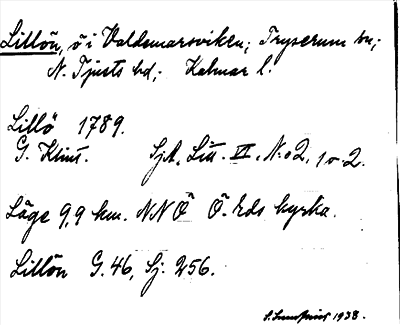 Lillön, ö i Valdemarsviken; Tryserum sn;
N. Tjusts hd; Kalmar l.
Lillö 1789.
G. Klint. SjA, Litt. VI, No 2, 1 o 2.
Läge 9,9 km. NNÖ Ö. Eds kyrka.
Lillön G. 46, Sj. 256.
1938.